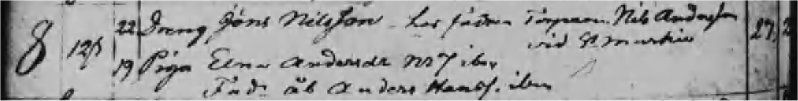 8 12/5 22 Dreng Jöns Nilsson fadren Torparen Nils Andersson
vid St. Markie 27
19 Piga Elna Andersdr No 7 ibm
Fadr åb Anders Hanss. ibm